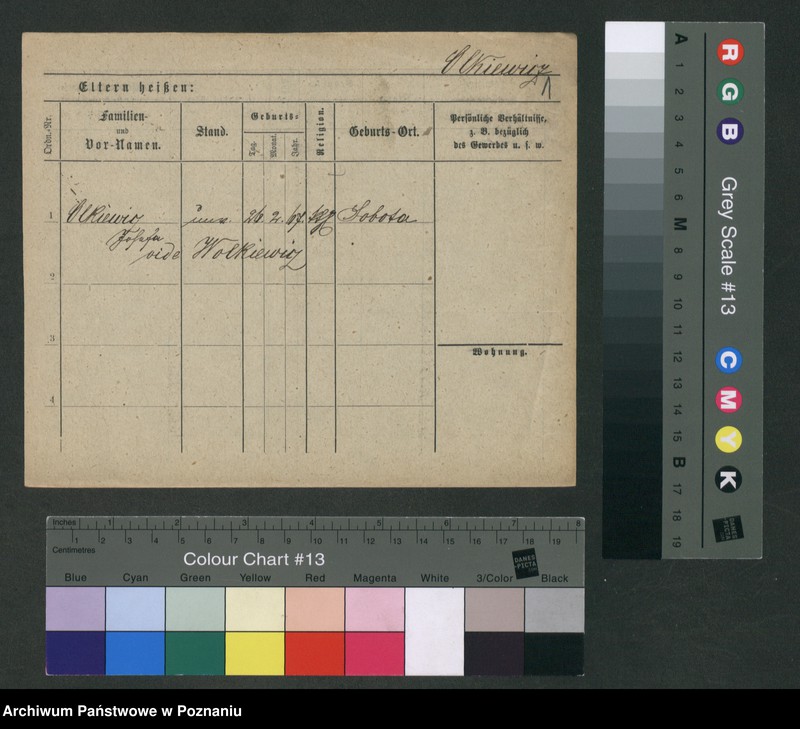 Olkiewicz
Eltern heißen:
Ordn.-Nr.
Familien-
und
Vor-Namen.
Stand.
Geburts-
Tag.
Monat.
Jahr.
Religion.
Geburts-Ort.
Persönliche Verhältnisse,
z. B. bezüglich
des Gewerbes u. s. w.
1 Olkiewicz unv. 26 2. 67. kgl Sobota
Josefa
vide Wolkiewicz
2
3
Wohnung.
4
A 1 2 3 4 5 6 M 8 9 10 11 12 13 14 15 B 17 18 19
R G B
Grey Scale #13
C M Y K
DANES
PICTA
Inches 1 2 3 4 5 6 7 8
1 2 3 4 5 6 7 8 9 10 11 12 13 14 15 16 17 18 19
Centimetres
Colour Chart #13
DANES
PICTA
Blue Cyan Green Yellow Red Magenta White 3/Color Black
Archiwum Państwowe w Poznaniu